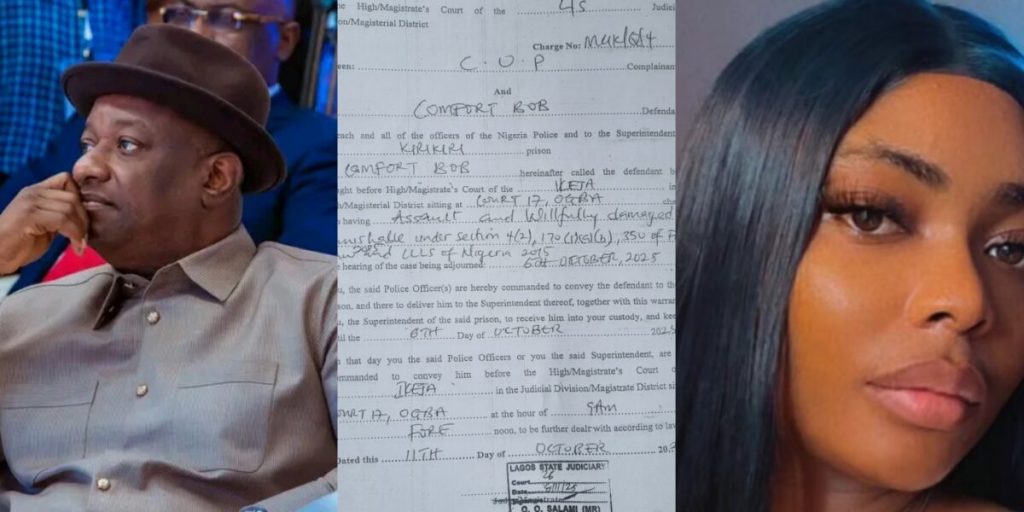 he High/Magistrate's Court of the 45 Judici
ion/Magisterial District
Charge No:
een: C.O.P Complainan
And
COMFORT BOB Defenda
each and all of the officers of the Nigeria Police and to the Superintendent
KIRIKIRI prison
COMFORT BOB hereinafter called the defendant b
ght before High/Magistrate's Court of the IKEJA in
l/Magisterial District sitting at COURT 17, OGBA cha
h having Assault and Willfully damaged
punishable under section 4(2), 170 350 of
and LLLS of Nigeria 2015
e hearing of the case being adjourned 6TH OCTOBER, 2025
u, the said Police Officer(s) are hereby commanded to convey the defendant to the
son, and there to deliver him to the Superintendent thereof, together with this warran
u, the Superintendent of the said prison, to receive him into your custody, and kee
til the 6TH Day of OCTOBER 2025
n that day you the said Police Officers or you the said Superintendent, are
mmanded to convey him before the High/Magistrate's Court o
IKEJA in the Judicial Division/Magistrate District si
COURT 17, OGBA at the hour of 9AM
FORE noon, to be further dealt with according to law
Dated this 11TH Day of OCTOBER 20
LAGOS STATE JUDICIARY
Court
Date
Magistrate
O. O. SALAMI (MR)